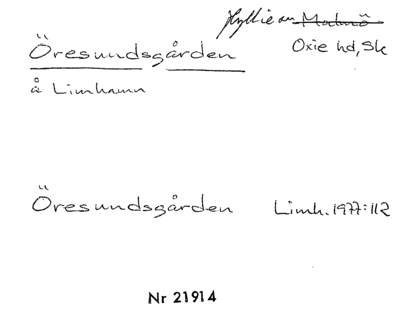 Hyllie sn Malmö
Öresundsgården Oxie hd, Sk
å Limhamn
Öresundsgården Limh. 1977:112
Nr 21914